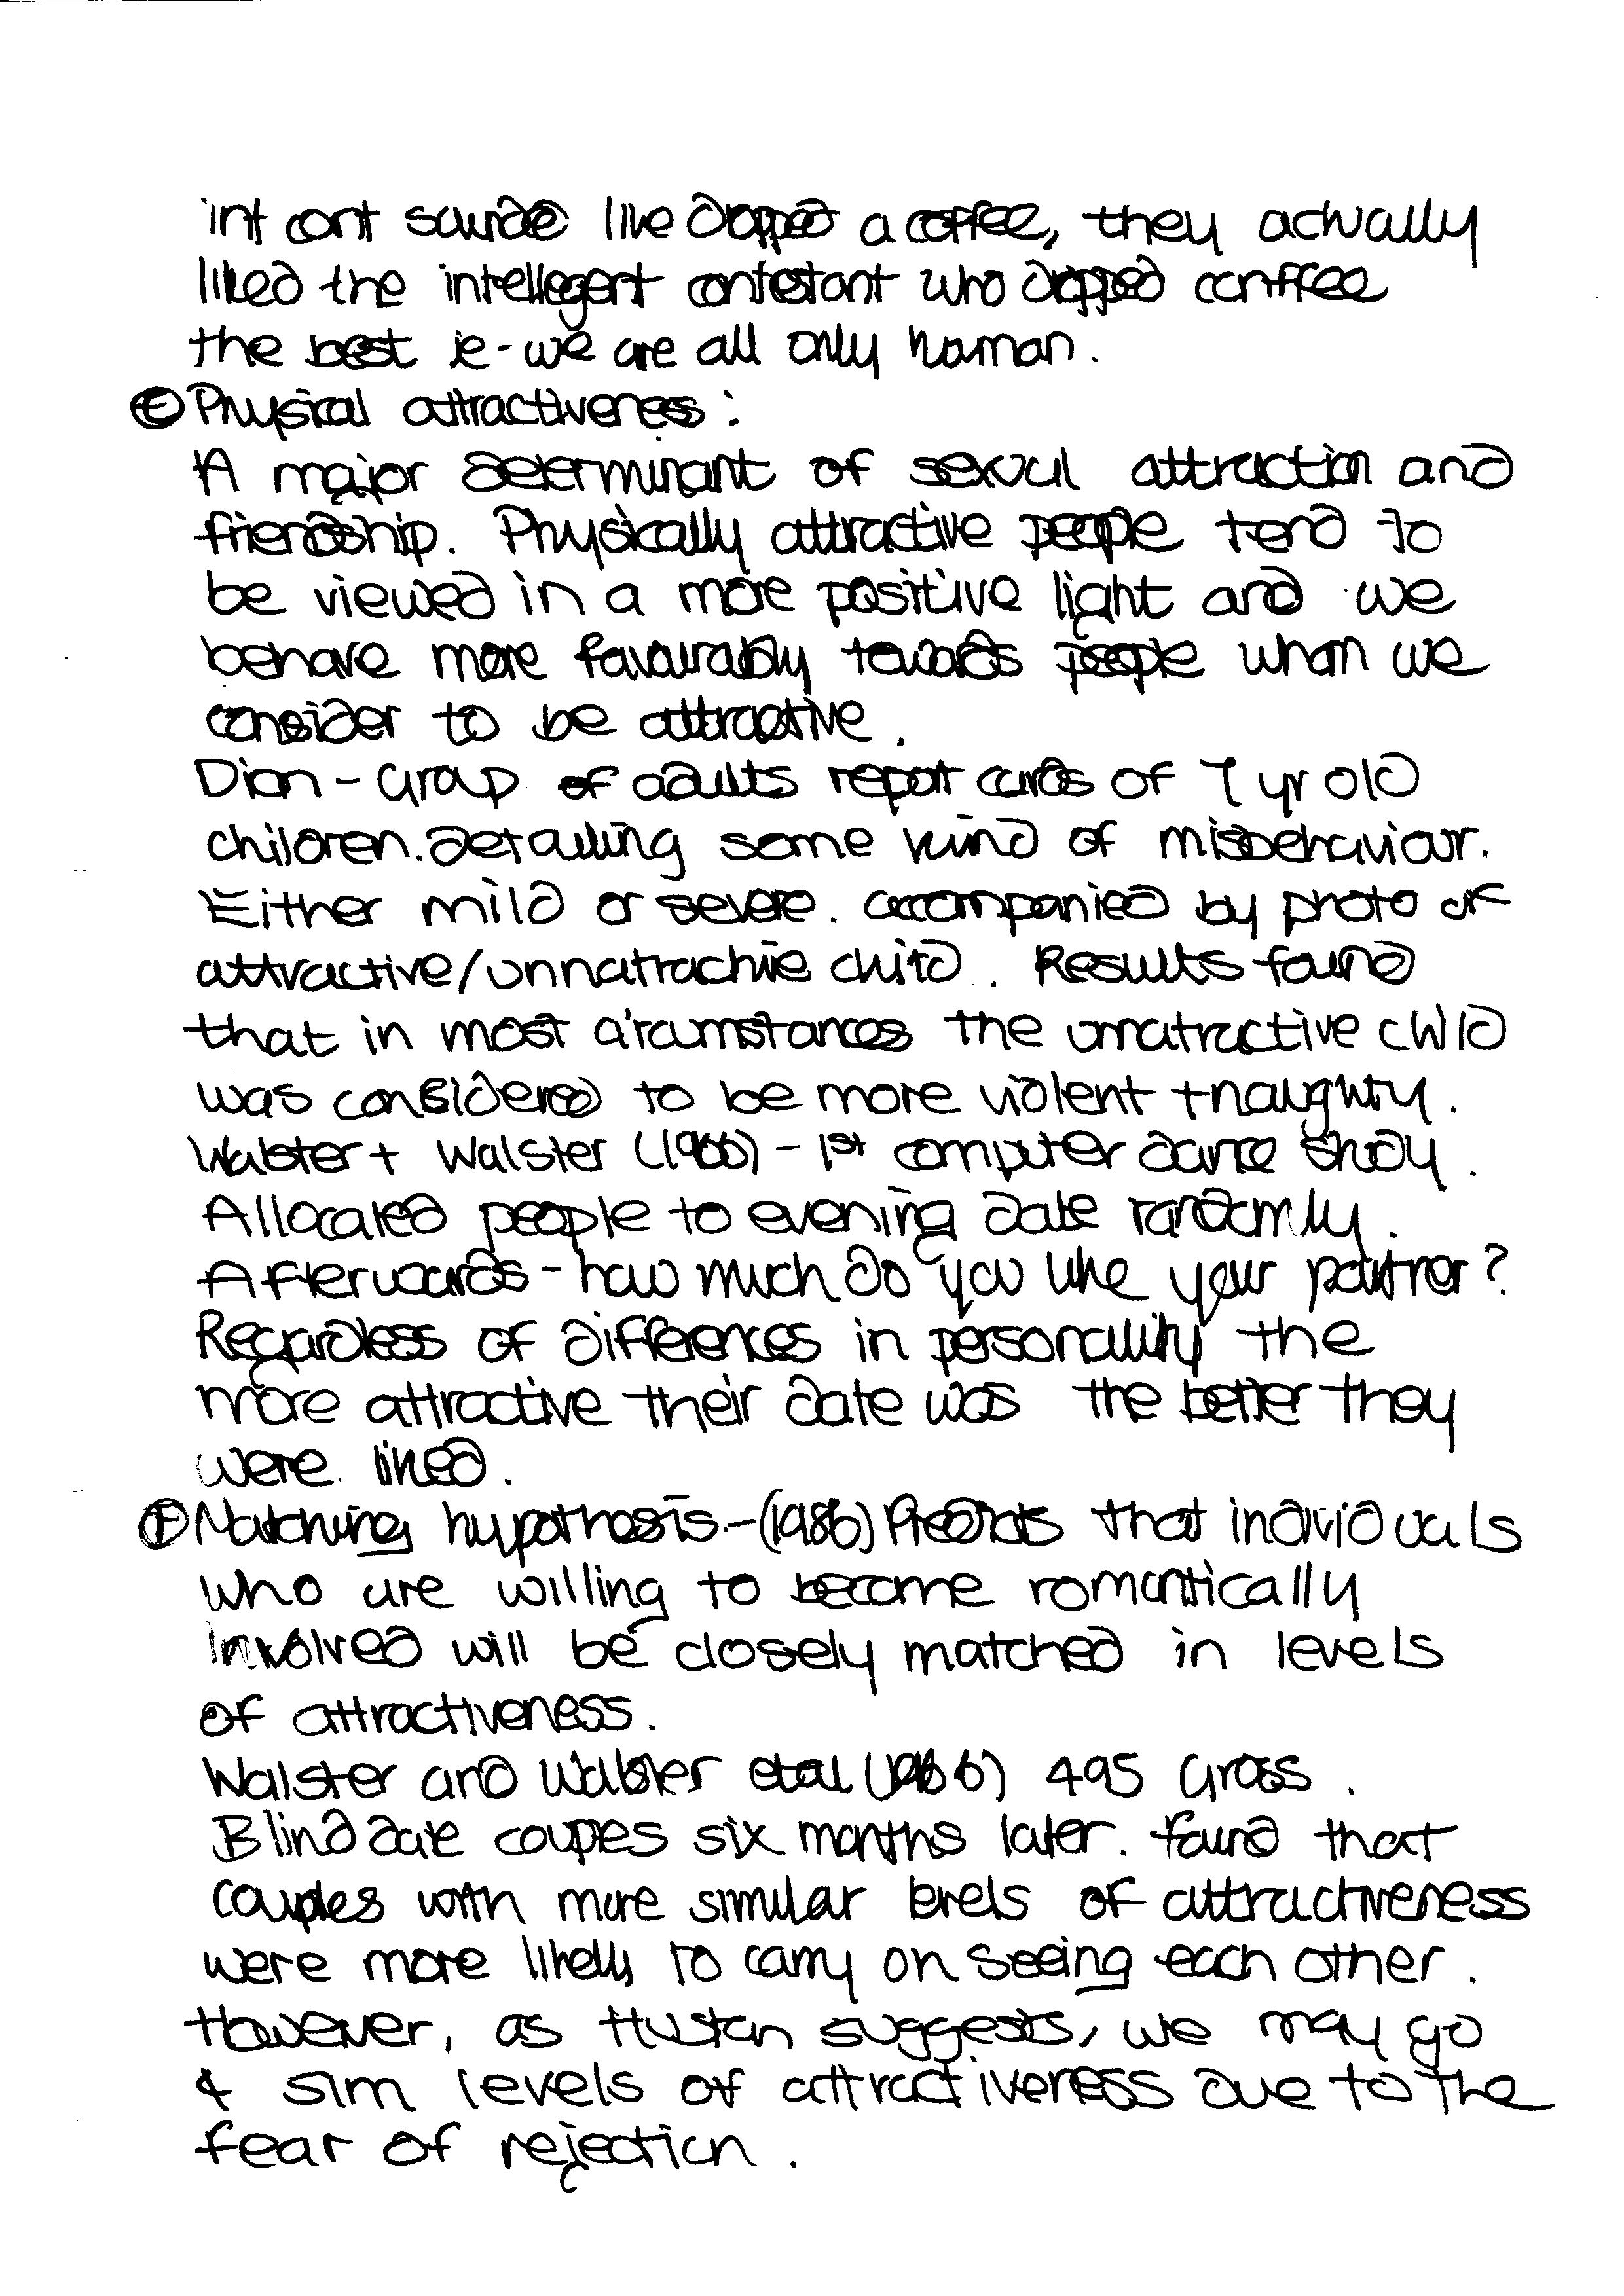 int cont sounded like dropped a coffee, they actually
liked the intellegent contestant who dropped conffee
the best ie - we are all only human.
Ⓔ Physical attractiveness:
A major determinant of sexual attraction and
friendship. Physically attractive people tend to
be viewed in a more positive light and we
behave more favourably towards people whom we
consider to be attractive.
Dion - Group of adults report cards of 7 yr old
children. detailing some kind of misbehaviour.
Either mild or severe. accompanied by photo of
attractive/unnatractive child. Results found
that in most circumstances the unatractive child
was considered to be more violent + naughty.
Walster + Walster (1966) - 1st computer dance study.
Allocated people to evening date randomly.
Afterwards - how much do you like your partner?
Regardless of differences in personality the
more attractive their date was the better they
were liked.
Ⓕ Matching hypothesis - (1986) Predicts that individuals
who are willing to become romantically
involved will be closely matched in levels
of attractiveness.
Walster and Walster etal (1966) 495 Gross.
Blind date coupes six months later. found that
couples with more similar levels of attractiveness
were more likely to carry on seeing each other.
However, as Huston suggests, we may go
4 sim levels of attractiveness due to the
fear of rejection.